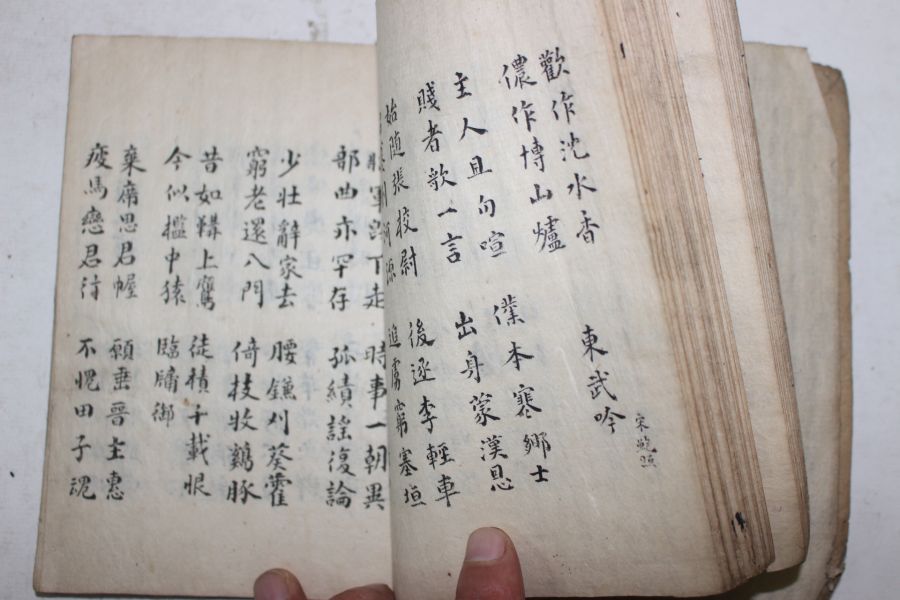 歡作沈水香
儂作博山爐
東武吟 宋鮑照
主人且勿喧
賤者歌一言
僕本寒鄉士
出身蒙漢恩
始随張校尉
後逐李輕車
追虜窮塞垣
軍下走
部曲亦罕存
時事一朝異
孤績謡復論
少壯辭家去
窮老還入門
腰鎌刈葵藿
倚技收鷄豚
昔如鞲上鷹
今似檻中猿
徒積千載恨
臨牗御
棄席思君幄
疲馬戀君
願垂晉主惠
不愧田子魂